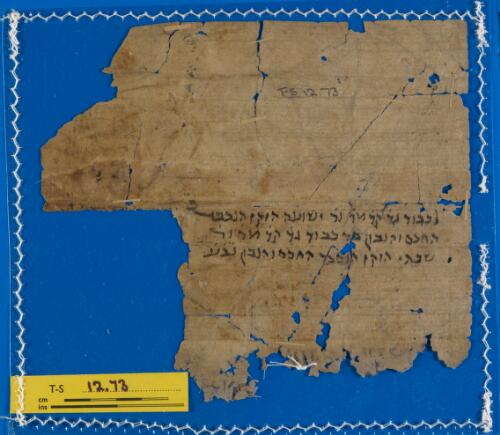 T-S 12.73
לכבוד גד קד מר ור ישועה הזקן הנכבד
החכם והנבון בר כבוד גד קד מר ור
שבתי הזקן החכם והנבון
T-S 12.73
cm
ins